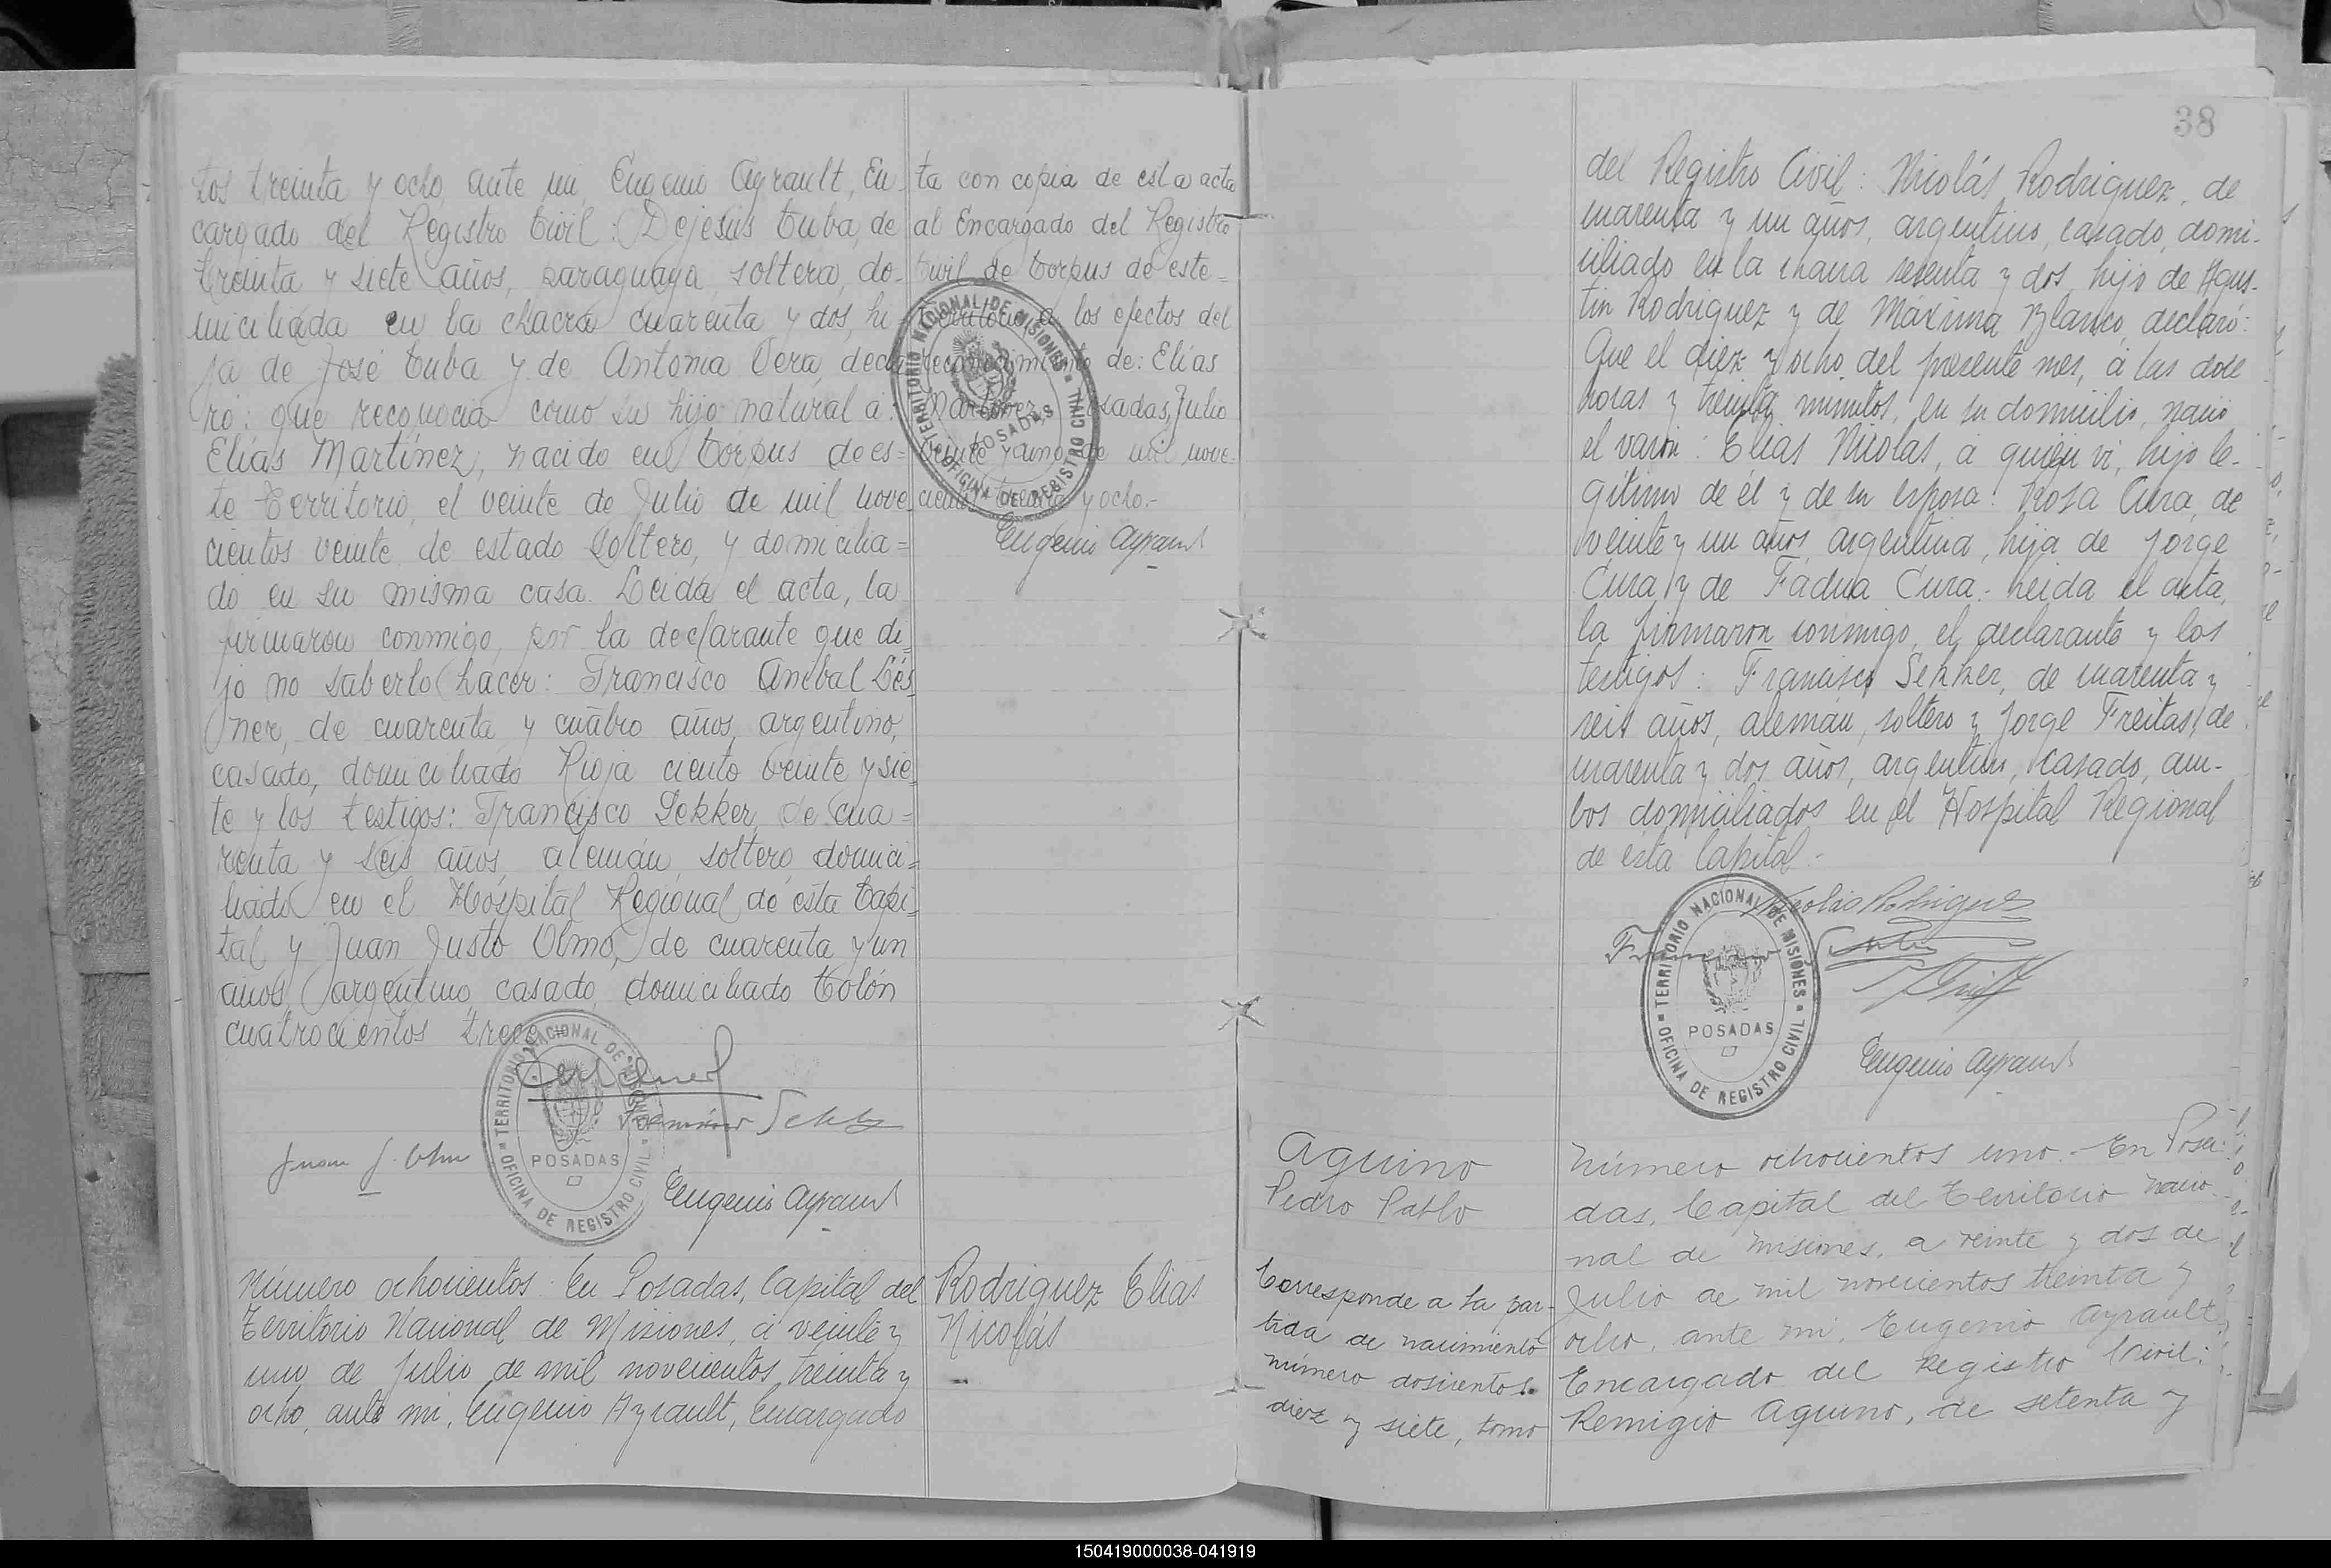 tos treinta y ocho, ante mi, Eugenio Ayrault, En-
cargado del Registro Civil: Dejesús Cuba, de
treinta y siete años, paraguaya, soltera, do-
miciliada en la chacra cuarenta y dos, hi-
ja de José Cuba y de Antonia Vera, decla
ró: que reconocia como su hijo natural a:
Elias Martínez, nacido en Corpus de es=
te Territorio, el veinte de Julio de mil nove
cientos veinte de estado soltero, y domicilia=
do en su misma casa. Leida el acta, la
firmaron conmigo, por la declarante que di-
jo no saberlo hacer: Francisco Anibal Lés
ner, de cuarenta y cuatro años, argentino,
casado, domiciliado Rioja ciento veinte y sie-
te y los testigos: Francisco Sekker, de cua=
renta y seis años, alemán, soltero, domici=
liado en el Hospital Regional de esta Capi-
tal y Juan Justo Olmo, de cuarenta y un
años, argentino, casado, domiciliado Colón
cuatrocientos trece
TERRITORIO NACIONAL DE MISIONES
POSADAS
OFICINA DE REGISTRO CIVIL
Juan J. Olmo
Eugenio Ayrault
ta con copia de esta acta
al Encargado del Registro
Civil de Corpus de este=
Territorio, a los efectos del
reconocimiento de: Elías
Martínez, Posadas, Julio
veinte y uno de mil nove-
cientos treinta y ocho.-
Eugenio Ayrault
TERRITORIO NACIONAL DE MISIONES
POSADAS
OFICINA DE REGISTRO CIVIL
Rodriguez Elias
Nicolás
Número ochocientos. En Posadas, Capital del
Territorio Nacional de Misiones, a veinte y
uno de Julio de mil novecientos treinta y
ocho, ante mi, Eugenio Ayrault, Encargado
38
del Registro Civil: Nicolás Rodriguez, de
cuarenta y un años, argentino, casado, domi-
ciliado en la chacra sesenta y dos, hijo de Agus-
tin Rodriguez y de Máxima Blanco, declaró:
Que el diez y ocho del presente mes, á las doce
horas y treinta minutos, en su domicilio, nació
el varón: Elias Nicolas, a quien vi, hijo le-
gitimo de él y de su esposa: Rosa Cura, de
veinte y un años, argentina, hija de Jorge
Cura y de Fadua Cura.- Leida el acta,
la firmaron conmigo, el declarante y los
testigos: Francisco Sekker, de cuarenta y
seis años, alemán, soltero y Jorge Freitas, de
cuarenta y dos años, argentino, casado, am-
bos domiciliados en el Hospital Regional
de esta Capital.-
Nicolás Rodriguez
TERRITORIO NACIONAL DE MISIONES
POSADAS
OFICINA DE REGISTRO CIVIL
Eugenio Ayrault
Aquino
Pedro Pablo
Corresponde a la par-
tida de nacimiento
número doscientos
diez y siete, tomo
Número ochocientos uno.- En Posa-
das, Capital del Territorio Nacio-
nal de Misiones, a veinte y dos de
Julio de mil novecientos treinta y
ocho, ante mi, Eugenio Ayrault,
Encargado del Registro Civil:
Remigio Aquino, de setenta y
150419000038-041919